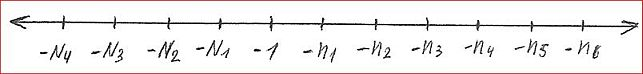 -N₄ -N₃ -N₂ -N₁ -1 -n₁ -n₂ -n₃ -n₄ -n₅ -n₆